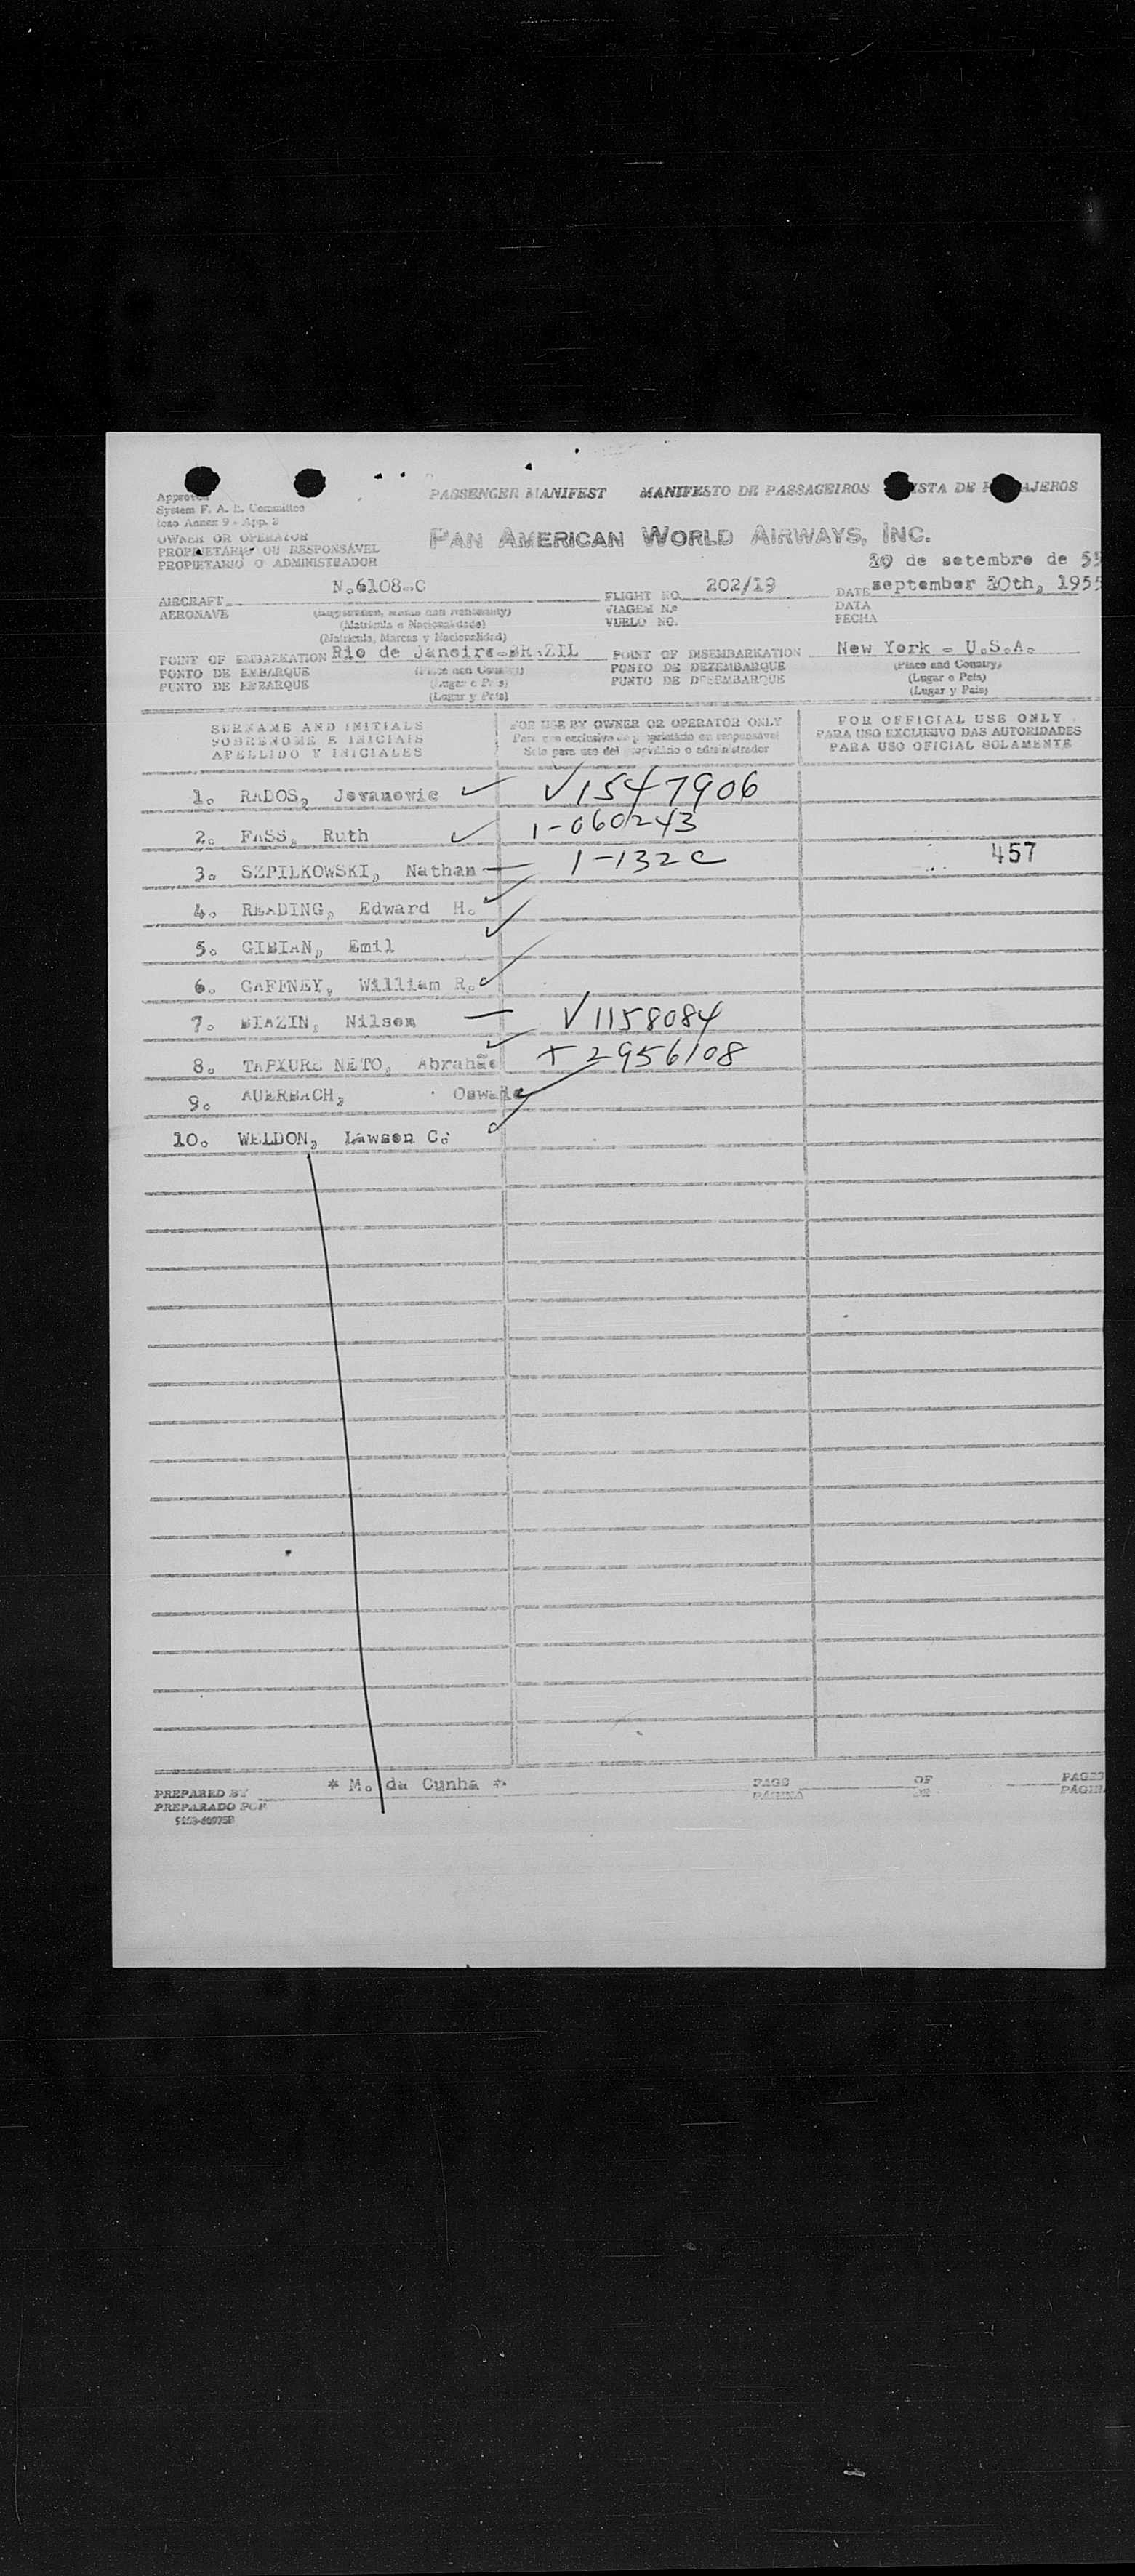 PASSENGER MANIFEST MANIFESTO DE PASSAGEIROS ISTA DE AJEROS
Approved
System F. A. L. Committee
Icao Annex 9 - App. 3
OWNER OR OPERATOR
PROPRIETÁRIO OU RESPONSÁVEL
PROPIETARIO O ADMINISTRADOR
PAN AMERICAN WORLD AIRWAYS, INC.
de setembro de 55
AIRCRAFT N.6108-C FLIGHT NO. 202/19 DATE september 1955
AERONAVE VIAGEM N.o DATA
VUELO NO. FECHA
(Matrícula e Nacionalidade)
(Matrícula, Marcas y Nacionalidad)
POINT OF EMBARKATION Rio de Janeiro-BRAZIL POINT OF DISEMBARKATION New York - U.S.A.
PONTO DE EMBARQUE (Place and Country) PONTO DE DEZEMBARQUE (Place and Country)
PUNTO DE EMBARQUE (Lugar e País) PUNTO DE DESEMBARQUE (Lugar e País)
(Lugar y País) (Lugar y País)
SURNAME AND INITIALS FOR USE BY OWNER OR OPERATOR ONLY FOR OFFICIAL USE ONLY
SOBRENOME E INICIAIS Para uso exclusivo do proprietário ou responsável PARA USO EXCLUSIVO DAS AUTORIDADES
APELLIDO Y INICIALES Solo para uso del o administrador PARA USO OFICIAL SOLAMENTE
1. RADOS, Jovanovic ✓ V1547906
2. FASS, Ruth ✓ 1-060243
3. SZPILKOWSKI, Nathan — 1-132C 457
4. READING, Edward H. ✓
5. GIBIAN, Emil ✓
6. GAFFNEY, William R. ✓
7. BIAZIN, Nilson — V1158084
8. TAPXURE NETO, Abrahão ✓ + 2956108
9. AUERBACH, Oswaldo
10. WELDON, Lawson C. ✓
PREPARED BY * M. da Cunha * PAGE OF PAGES
PREPARADO POR PÁGINA DE PÁGINA